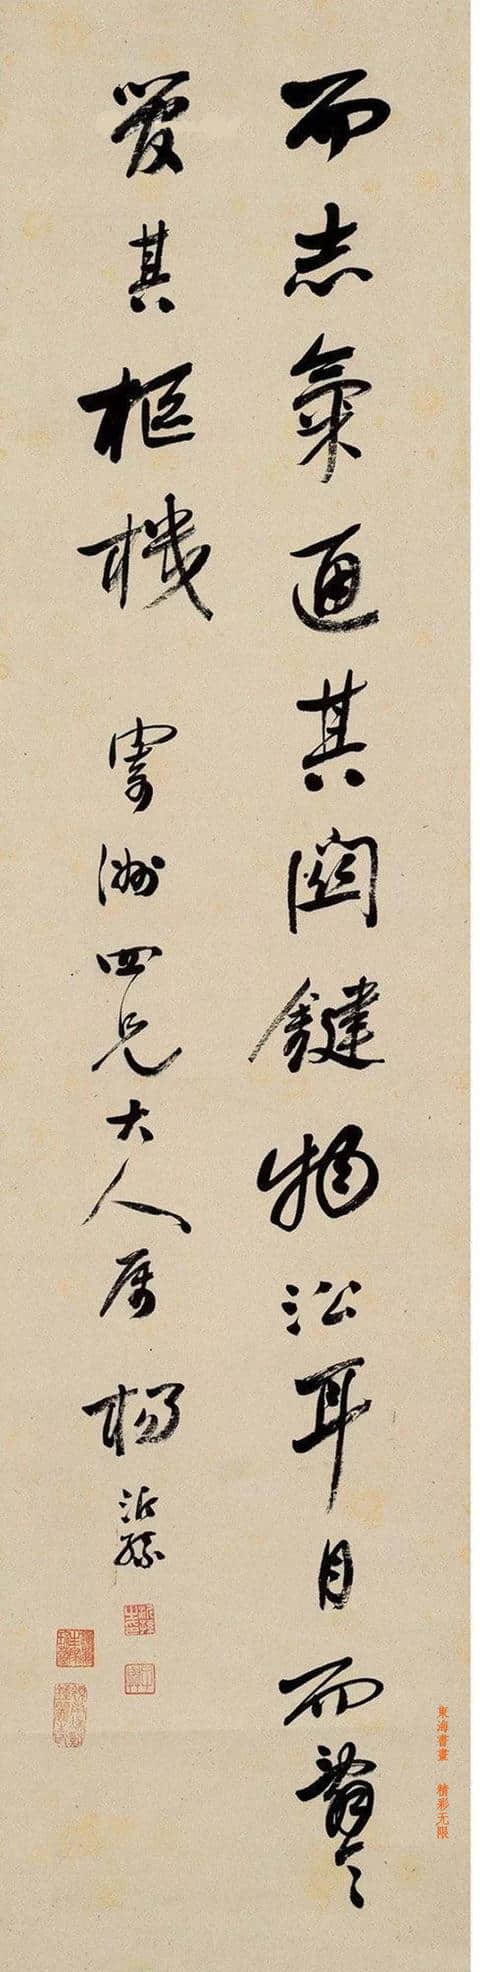 而志氣通其關鍵物㳂耳目而辭令
管其樞機 寄洲四兄大人屬 楊沂孫
東海書畫 精彩无限